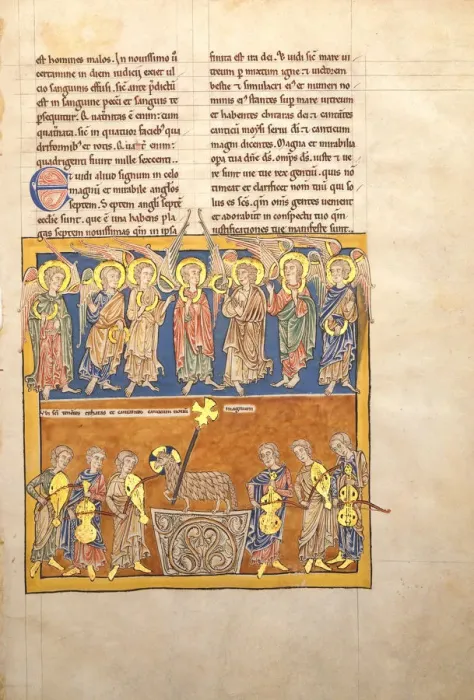 est homines malos. In nouissimo ū
certamine in diem iudicij exiet ul
cio sanguinis effusi. sic ante p̄dictū
est in sanguine et sanguis te
psequitur. ē enim. cum
sic in quatuor facieb; qua
driformib; et rotis. enim
quadrigenti fiunt mille sexcenti..
Et uidi aliud signum in celo
magnū et mirabile anglos
septem. Septem angli septē
ecclie sunt. que ē una habens pla
gas septem nouissimas qm̄ in ipsa
finita est ira dei. Et uidi sic mare ui
treum p mixtum igne. et uictorem
bestie et simulacri ei; et numeri no
minis ei; stantes sup mare uitreum
et habentes citharas dei. et cantātes
canticū moysi serui dī. et canticum
magni dicentes. Magna et mirabilia
opa tua dn̄e ds̄. omp̄s ds̄. iuste et ue
re sunt uie tue rex gentiū. quis nō
timeat et clarificet nom̄ tuū qui so
lus es sc̄s. qm̄ om̄s gentes uenient
et adorabūt in conspectu tuo qm̄
iustificationes tue manifeste sunt..
Vbi sc̄i citharas et canticum